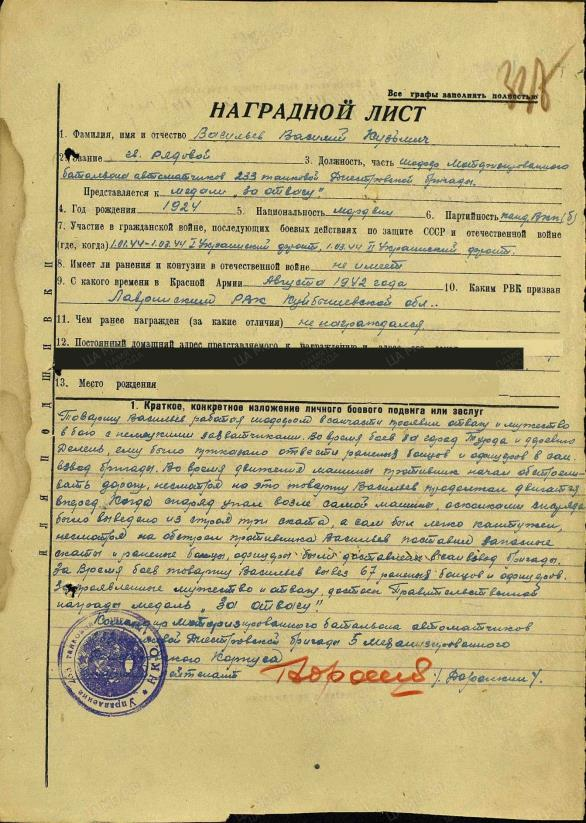 328
Все графы заполнять полностью
НАГРАДНОЙ ЛИСТ
1. Фамилия, имя и отчество Васильев Василий Кузьмич
2. Звание гв. рядовой 3. Должность, часть шофер Моториз​ированного
батальона автоматчиков 233 танковой Днестровской бригады.
Представляется к медали "За отвагу".
4. Год рождения 1924 5. Национальность мордвин 6. Партийность канд. ВКП(б)
7. Участие в гражданской войне, последующих боевых действиях по защите СССР и отечественной войне
(где, когда) 1.03.44 II Украинский фронт.
8. Имеет ли ранения и контузии в отечественной войне не имеет
9. С какого времени в Красной Армии Августа 1942 года 10. Каким РВК призван
РВК Куйбышевской обл..
11. Чем ранее награжден (за какие отличия) не награждался
12. Постоянный домашний адрес представляемого к награждению и адрес его семьи
13. Место рождения
1. Краткое, конкретное изложение личного боевого подвига или заслуг
Товарищ Васильев работая шофером в санчасти проявил отвагу и мужество
в бою с немецкими захватчиками. Во время боев за город Турда и деревню
было приказано отвести раненых бойцов и офицеров в сан.
взвод бригады. Во время движения машины противник начал обстрели-
вать дорогу, несмотря на это товарищ Васильев продолжал двигаться
вперед. Когда снаряд упал возле самой машины, осколками снаряда
было выведено из строя три ската, а сам был легко контужен,
несмотря на обстрел противника Васильев поставил запасные
скаты и раненые бойцы, офицеры были доставлены в сан взвод бригады.
За время боев товарищ Васильев вывез 67 раненых бойцов и офицеров.
За проявленные мужество и отвагу, достоен Правительственной
награды медаль "За отвагу".
Командир моторизированного батальона автоматчиков
Днестровской бригады 5 механизированного
Корпуса
Управление
НКО
ДЛЯ ПОДШИВКИ